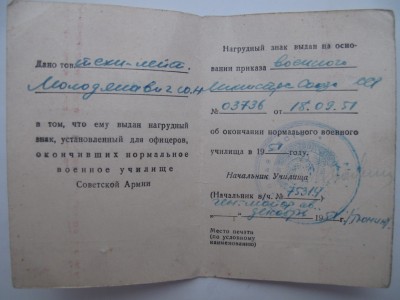 Дано тов.
в том, что ему выдан нагрудный
знак, установленный для офицеров,
окончивших нормальное
военное училище
Советской Армии
Нагрудный знак выдан на осно-
вании приказа военного
№ 03736 от 18.09.51
об окончании нормального военного
училища в 1951 году.
Начальник Училища
(Начальник в/ч. № 75314)
ген. майор
декабря 195
Место печати
(по условному
наименованию)